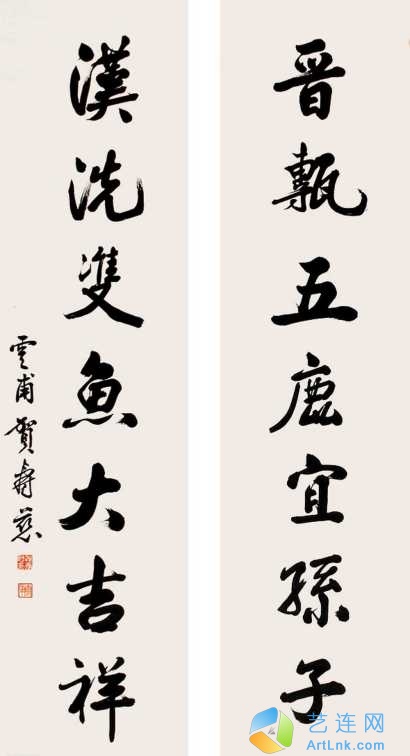 晋甎五鹿宜孫子
漢洗雙魚大吉祥
雲甫賀壽慈
艺连网
ArtLink.com